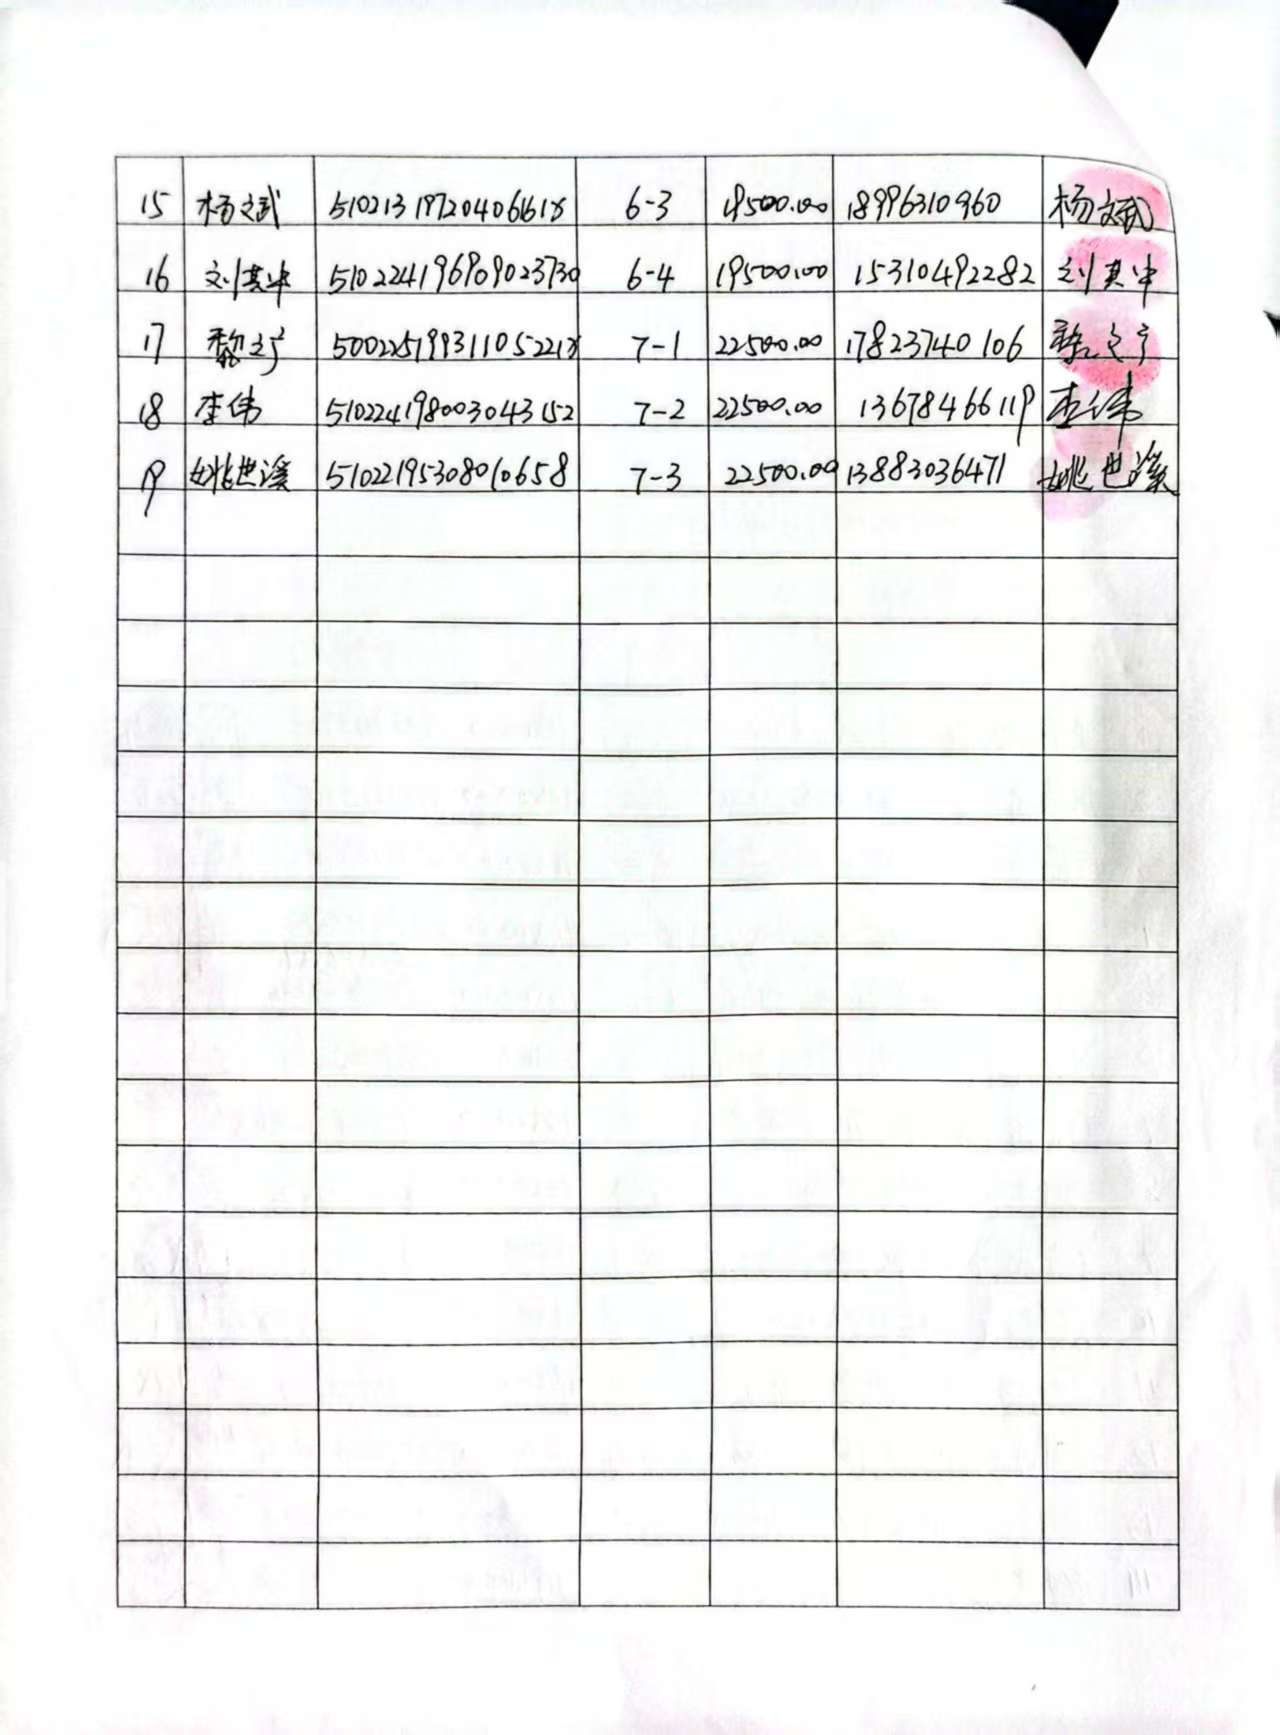 15 杨文武 51021319720406161X 6-3 19500.00 18996310960 杨文武
16 刘其中 510224196909023730 6-4 19500.00 15310492282 刘其中
17 黎之 50022519931105221X 7-1 22500.00 17823740106 黎之
18 李伟 510224198003043152 7-2 22500.00 13678466119 李伟
19 姚世溪 510221195308010658 7-3 22500.00 13883036471 姚世溪